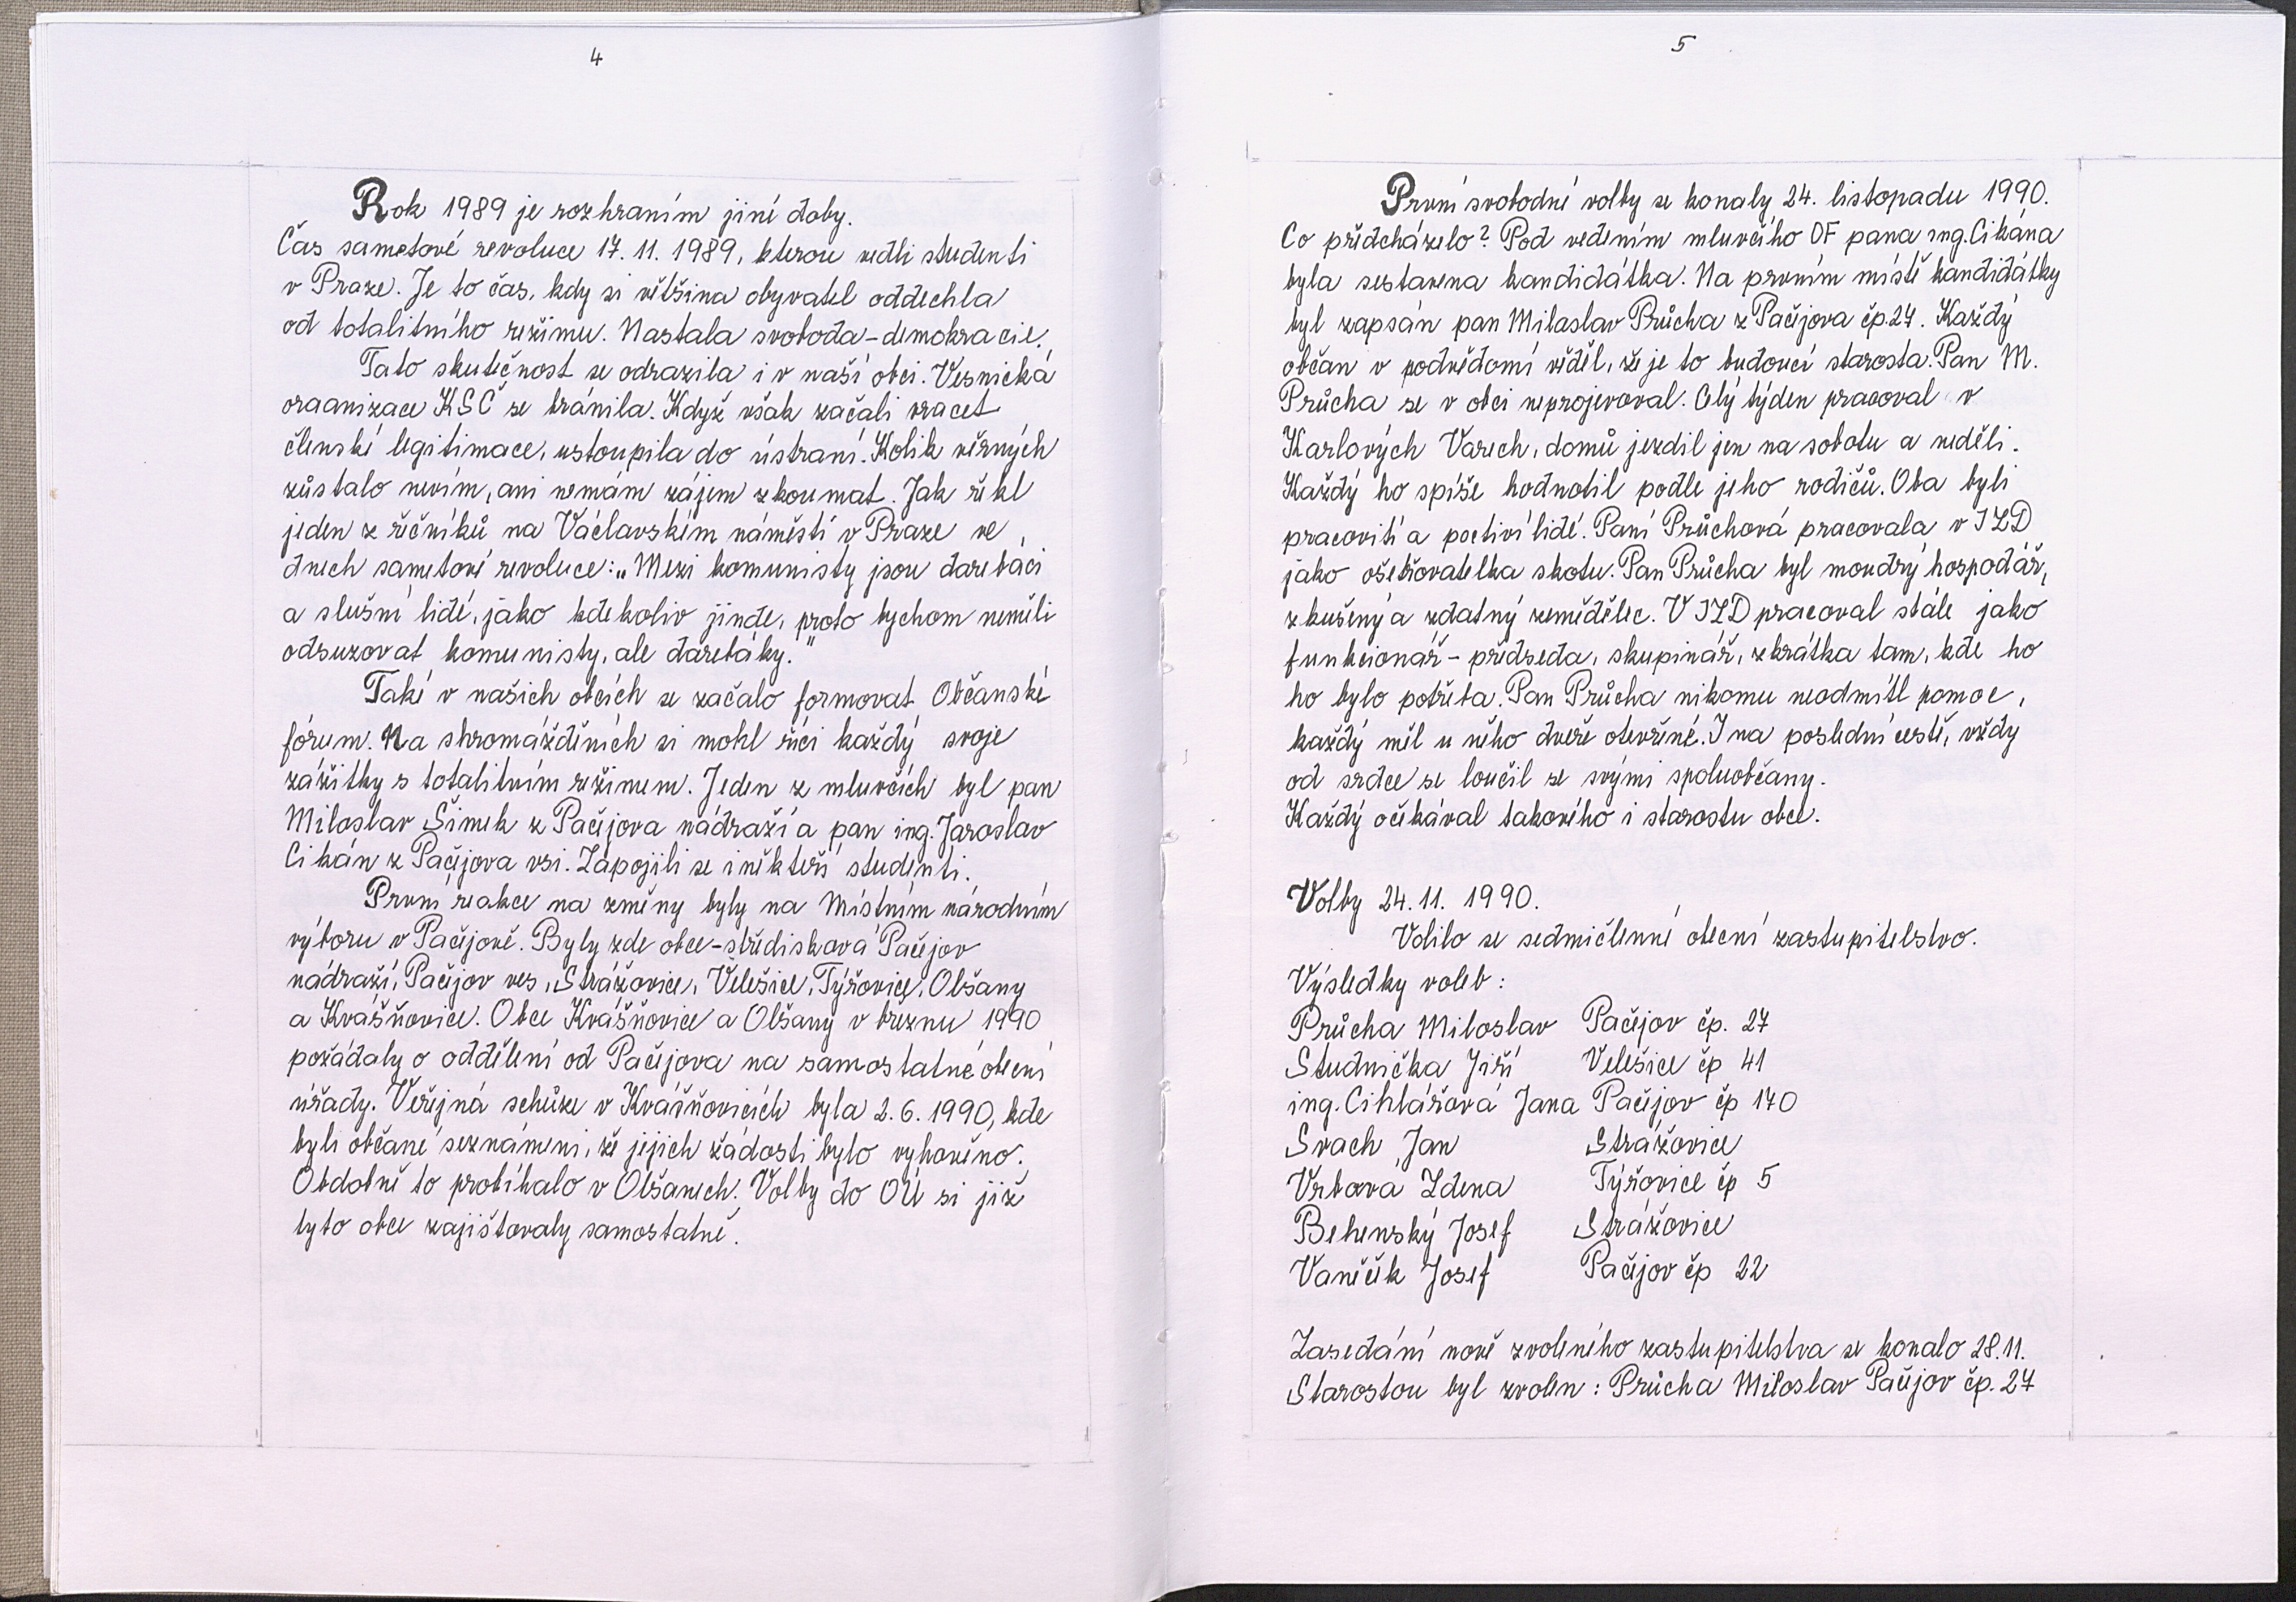 4
Rok 1989 je rozhraním jiné doby.
Čas sametové revoluce 17. 11. 1989, kterou vedli studenti
v Praze. Je to čas, kdy si většina obyvatel oddechla
od totalitního režimu. Nastala svoboda - demokracie.
Tato skutečnost se odrazila i v naší obci. Vesnická
organizace KSČ se bránila. Když však začali vracet
členské legitimace, ustoupila do ústraní. Kolik věrných
zůstalo nevím, ani nemám zájem zkoumat. Jak řekl
jeden z řečníků na Václavském náměstí v Praze ve
dnech sametové revoluce: „Mezi komunisty jsou darebáci
a slušní lidé, jako kdekoliv jinde, proto bychom neměli
odsuzovat komunisty, ale darebáky."
Také v našich obcích se začalo formovat Občanské
fórum. Na shromážděních si mohl říci každý svoje
zážitky s totalitním režimem. Jeden z mluvčích byl pan
Miloslav Šimek z Pačejova nádraží a pan ing. Jaroslav
Cikán z Pačejova vsi. Zapojili se i někteří studenti.
První reakce na změny byly na Místním národním
výboru v Pačejově. Byly zde obce - středisková Pačejov
nádraží, Pačejov ves, Strážovice, Velešice, Týřovice, Olšany
a Kvášňovice. Obce Kvášňovice a Olšany v březnu 1990
požádaly o oddělení od Pačejova na samostatné obecní
úřady. Veřejná schůze v Kvášňovicích byla 2. 6. 1990, kde
byli občané seznámeni, že jejich žádosti bylo vyhověno.
Obdobně to probíhalo v Olšanech. Volby do OÚ si již
tyto obce zajišťovaly samostatně.
5
První svobodné volby se konaly 24. listopadu 1990.
Co předcházelo? Pod vedením mluvčího OF pana ing. Cikána
byla sestavena kandidátka. Na prvním místě kandidátky
byl zapsán pan Miloslav Průcha z Pačejova čp. 27. Každý
občan v podvědomí věděl, že je to budoucí starosta. Pan M.
Průcha se v obci neprojevoval. Celý týden pracoval v
Karlových Varech, domů jezdil jen na sobotu a neděli.
Každý ho spíše hodnotil podle jeho rodičů. Oba byli
pracovití a poctiví lidé. Paní Průchová pracovala v JZD
jako ošetřovatelka skotu. Pan Průcha byl moudrý hospodář,
zkušený a zdatný zemědělec. V JZD pracoval stále jako
funkcionář - předseda, skupinář, zkrátka tam, kde ho
ho bylo potřeba. Pan Průcha nikomu neodmítl pomoc,
každý měl u něho dveře otevřené. I na poslední cestě, vždy
od srdce se loučil se svými spoluobčany.
Každý očekával takového i starostu obce.
Volby 24. 11. 1990.
Volilo se sedmičlenné obecní zastupitelstvo.
Výsledky voleb:
Průcha Miloslav Pačejov čp. 27
Studnička Jiří Velešice čp 41
ing. Cihlářová Jana Pačejov čp 170
Svach Jan Strážovice
Vrbová Zdena Týřovice čp 5
Behenský Josef Strážovice
Vaněček Josef Pačejov čp 22
Zasedání nově zvoleného zastupitelstva se konalo 28. 11.
Starostou byl zvolen: Průcha Miloslav Pačejov čp. 27